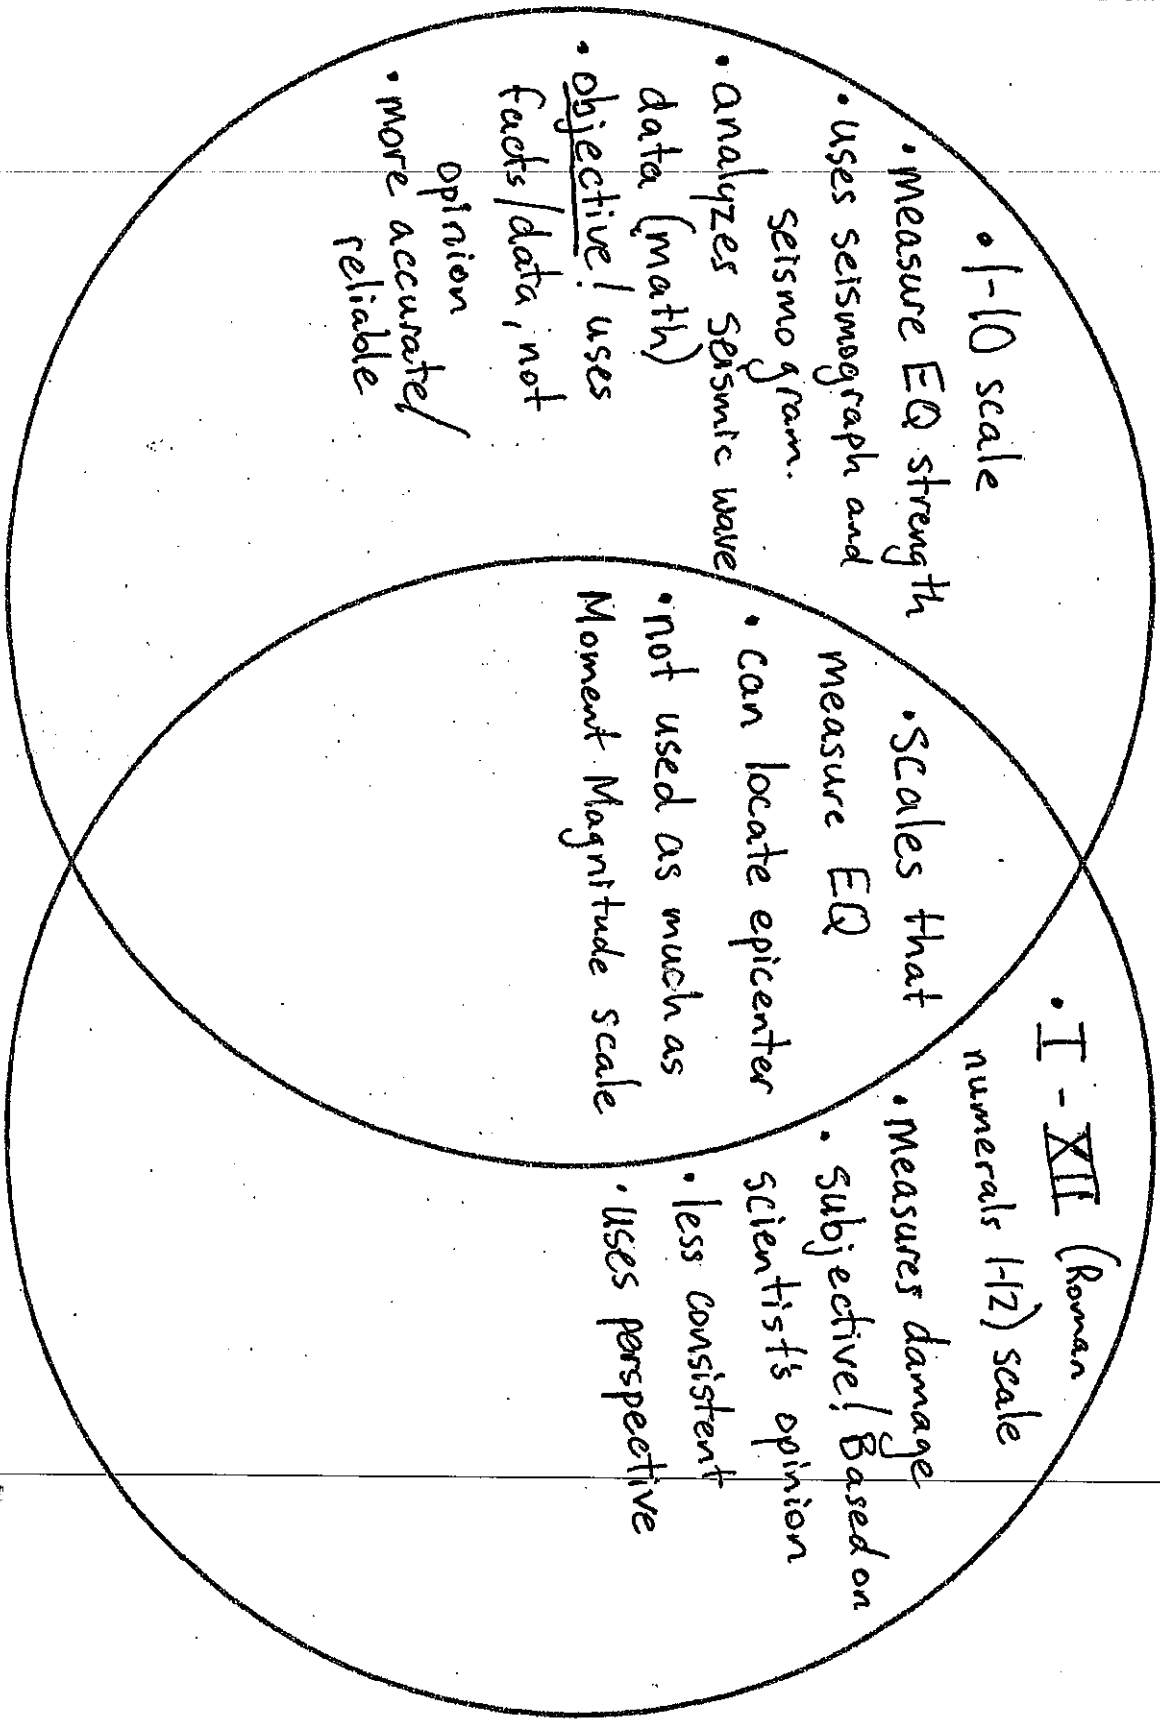 • 1-10 scale
• measure EQ strength
• uses seismograph and
seismogram.
• analyzes seismic wave
data (math)
• objective! uses
facts/data, not
opinion
• more accurate/
reliable
• Scales that
measure EQ
• can locate epicenter
• not used as much as
Moment Magnitude scale
• I - XII (Roman
numerals 1-12) scale
• Measures damage
• subjective! Based on
scientist's opinion
• less consistent
• uses perspective